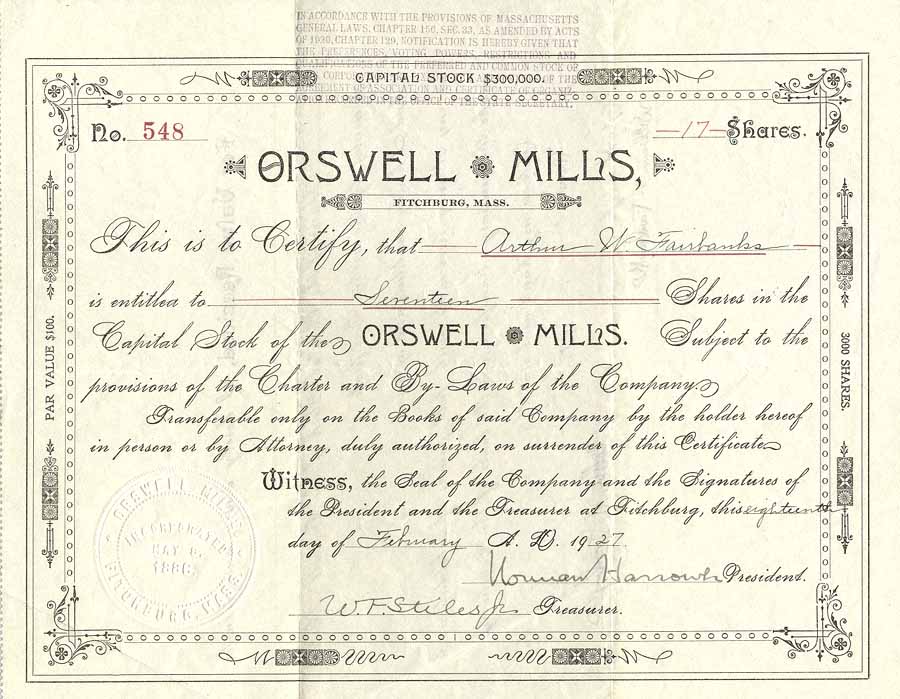 IN ACCORDANCE WITH THE PROVISIONS OF MASSACHUSETTS
GENERAL LAWS, CHAPTER 156, SEC. 33, AS AMENDED BY ACTS
OF 1920, CHAPTER 129, NOTIFICATION IS HEREBY GIVEN THAT
THE PREFERENCES, VOTING POWERS, RESTRICTIONS AND
QUALIFICATIONS OF THE PREFERRED AND COMMON STOCK OF
CAPITAL STOCK $300,000.
AGREEMENT OF ASSOCIATION AND CERTIFICATE OF ORGANIZ-
STATE SECRETARY.
No. 548
—17— Shares.
ORSWELL MILLS,
FITCHBURG, MASS.
This is to Certify, that Arthur W Fairbanks
is entitled to Seventeen Shares in the
Capital Stock of the ORSWELL MILLS. Subject to the
provisions of the Charter and By-Laws of the Company.
Transferable only on the Books of said Company by the holder hereof
in person or by Attorney, duly authorized, on surrender of this Certificate
Witness, the Seal of the Company and the Signatures of
the President and the Treasurer at Fitchburg, this eighteenth
day of February A. D. 1927
Norman Harrower President.
W. F. Stiles Jr Treasurer.
PAR VALUE $100.
3000 SHARES.
ORSWELL MILLS
INCORPORATED
MAY
1886.
FITCHBURG, MASS.